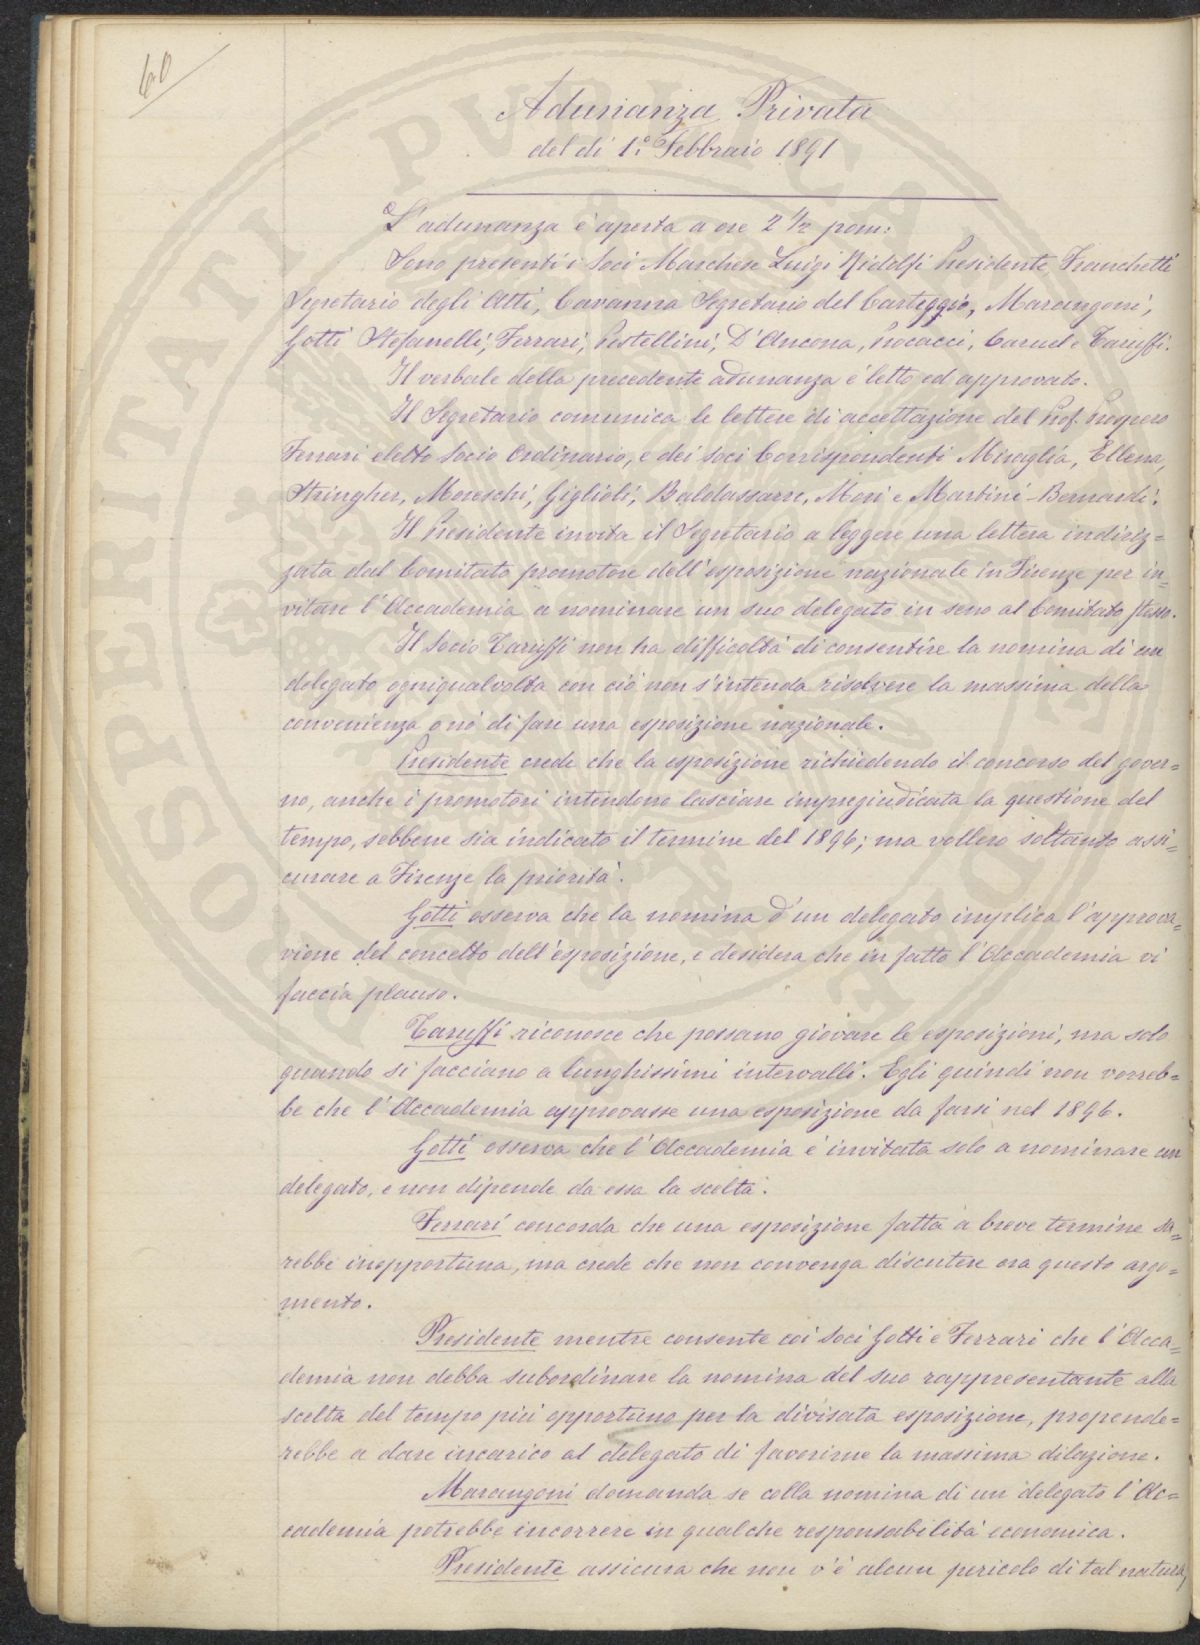 60
Adunanza Privata
del dì 1.º Febbraio 1891
L'adunanza è aperta a ore 2 1/2 pom:
Sono presenti i Soci Marchese Luigi Ridolfi Presidente, Franchetti
Segretario degli Atti, Cavanna Segretario del Carteggio, Marangoni,
Gotti Stefanelli, Ferrari, Pestellini, D'Ancona, Procacci, Caruel e Taruffi.
Il verbale della precedente adunanza è letto ed approvato.
Il Segretario comunica le lettere di accettazione del Prof. Prospero
Ferrari eletto Socio Ordinario, e dei Soci Corrispondenti Miraglia, Ellena,
Stringher, Moreschi, Giglioli, Baldassarre, Mori e Martini-Bernardi.
Il Presidente invita il Segretario a leggere una lettera indiriz=
zata dal Comitato promotore dell'esposizione nazionale in Firenze per in=
vitare l'Accademia a nominare un suo delegato in seno al Comitato stesso.
Il Socio Taruffi non ha difficoltà di consentire la nomina di un
delegato ogniqualvolta con ciò non s'intenda risolvere la massima della
convenienza o nò di fare una esposizione nazionale.
Presidente crede che la esposizione richiedendo il concorso del gover=
no, anche i promotori intendono lasciare impregiudicata la questione del
tempo, sebbene sia indicato il termine del 1896; ma vollero soltanto assi=
curare a Firenze la priorità.
Gotti osserva che la nomina d'un delegato implica l'approva=
zione del concetto dell'esposizione, e desidera che in fatto l'Accademia vi
faccia plauso.
Taruffi riconosce che possano giovare le esposizioni, ma solo
quando si facciano a lunghissimi intervalli. Egli quindi non vorreb=
be che l'Accademia approvasse una esposizione da farsi nel 1896.
Gotti osserva che l'Accademia è invitata solo a nominare un
delegato, e non dipende da essa la scelta.
Ferrari concorda che una esposizione fatta a breve termine sa=
rebbe inopportuna, ma crede che non convenga discutere ora questo argo=
mento.
Presidente mentre consente coi Soci Gotti e Ferrari che l'Acca=
demia non debba subordinare la nomina del suo rappresentante alla
scelta del tempo più opportuno per la divisata esposizione, propende=
rebbe a dare incarico al delegato di favorirne la massima dilazione.
Marangoni domanda se colla nomina di un delegato l'Ac=
cademia potrebbe incorrere in qualche responsabilità economica.
Presidente assicura che non v'è alcun pericolo di tal natura,
OSPERITATI PVBLICAE